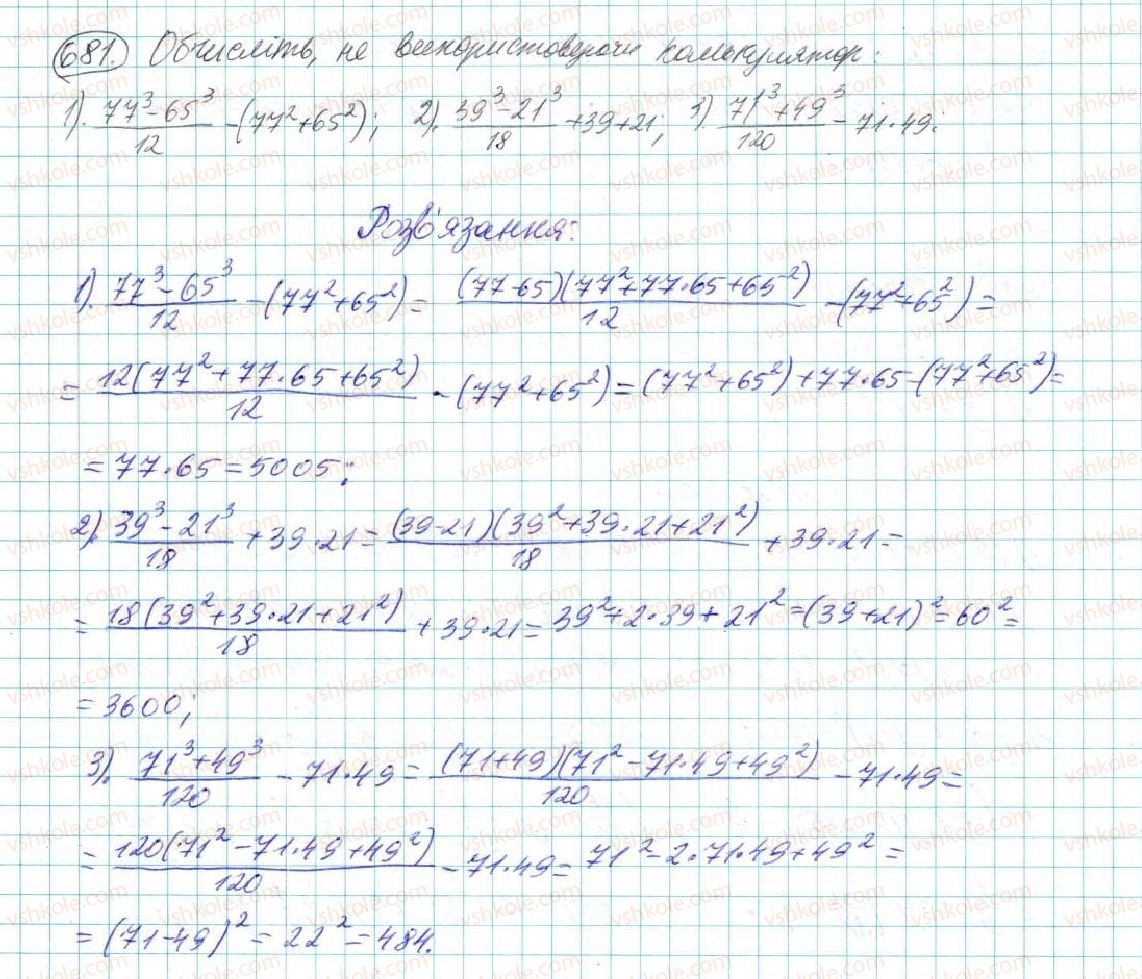 681. Обчисліть, не використовуючи калькулятор:
1). (77³-65³)/12 -(77²+65²); 2). (39³-21³)/18 +39+21; 3) (71³+49³)/120 - 71·49.
Розв'язання:
1). (77³-65³)/12 -(77²+65²)= ((77-65)(77²+77·65+65²))/12 -(77²+65²)=
= (12(77²+77·65+65²))/12 -(77²+65²)=(77²+65²)+77·65-(77²+65²)=
=77·65=5005;
2). (39³-21³)/18 +39·21= ((39-21)(39²+39·21+21²))/18 +39·21=
= (18(39²+39·21+21²))/18 +39·21= 39²+2·39+21²=(39+21)²=60²=
=3600;
3). (71³+49³)/120 - 71·49= ((71+49)(71²-71·49+49²))/120 -71·49=
= (120(71²-71·49+49²))/120 -71·49= 71²-2·71·49+49²=
= (71-49)²=22²=484.